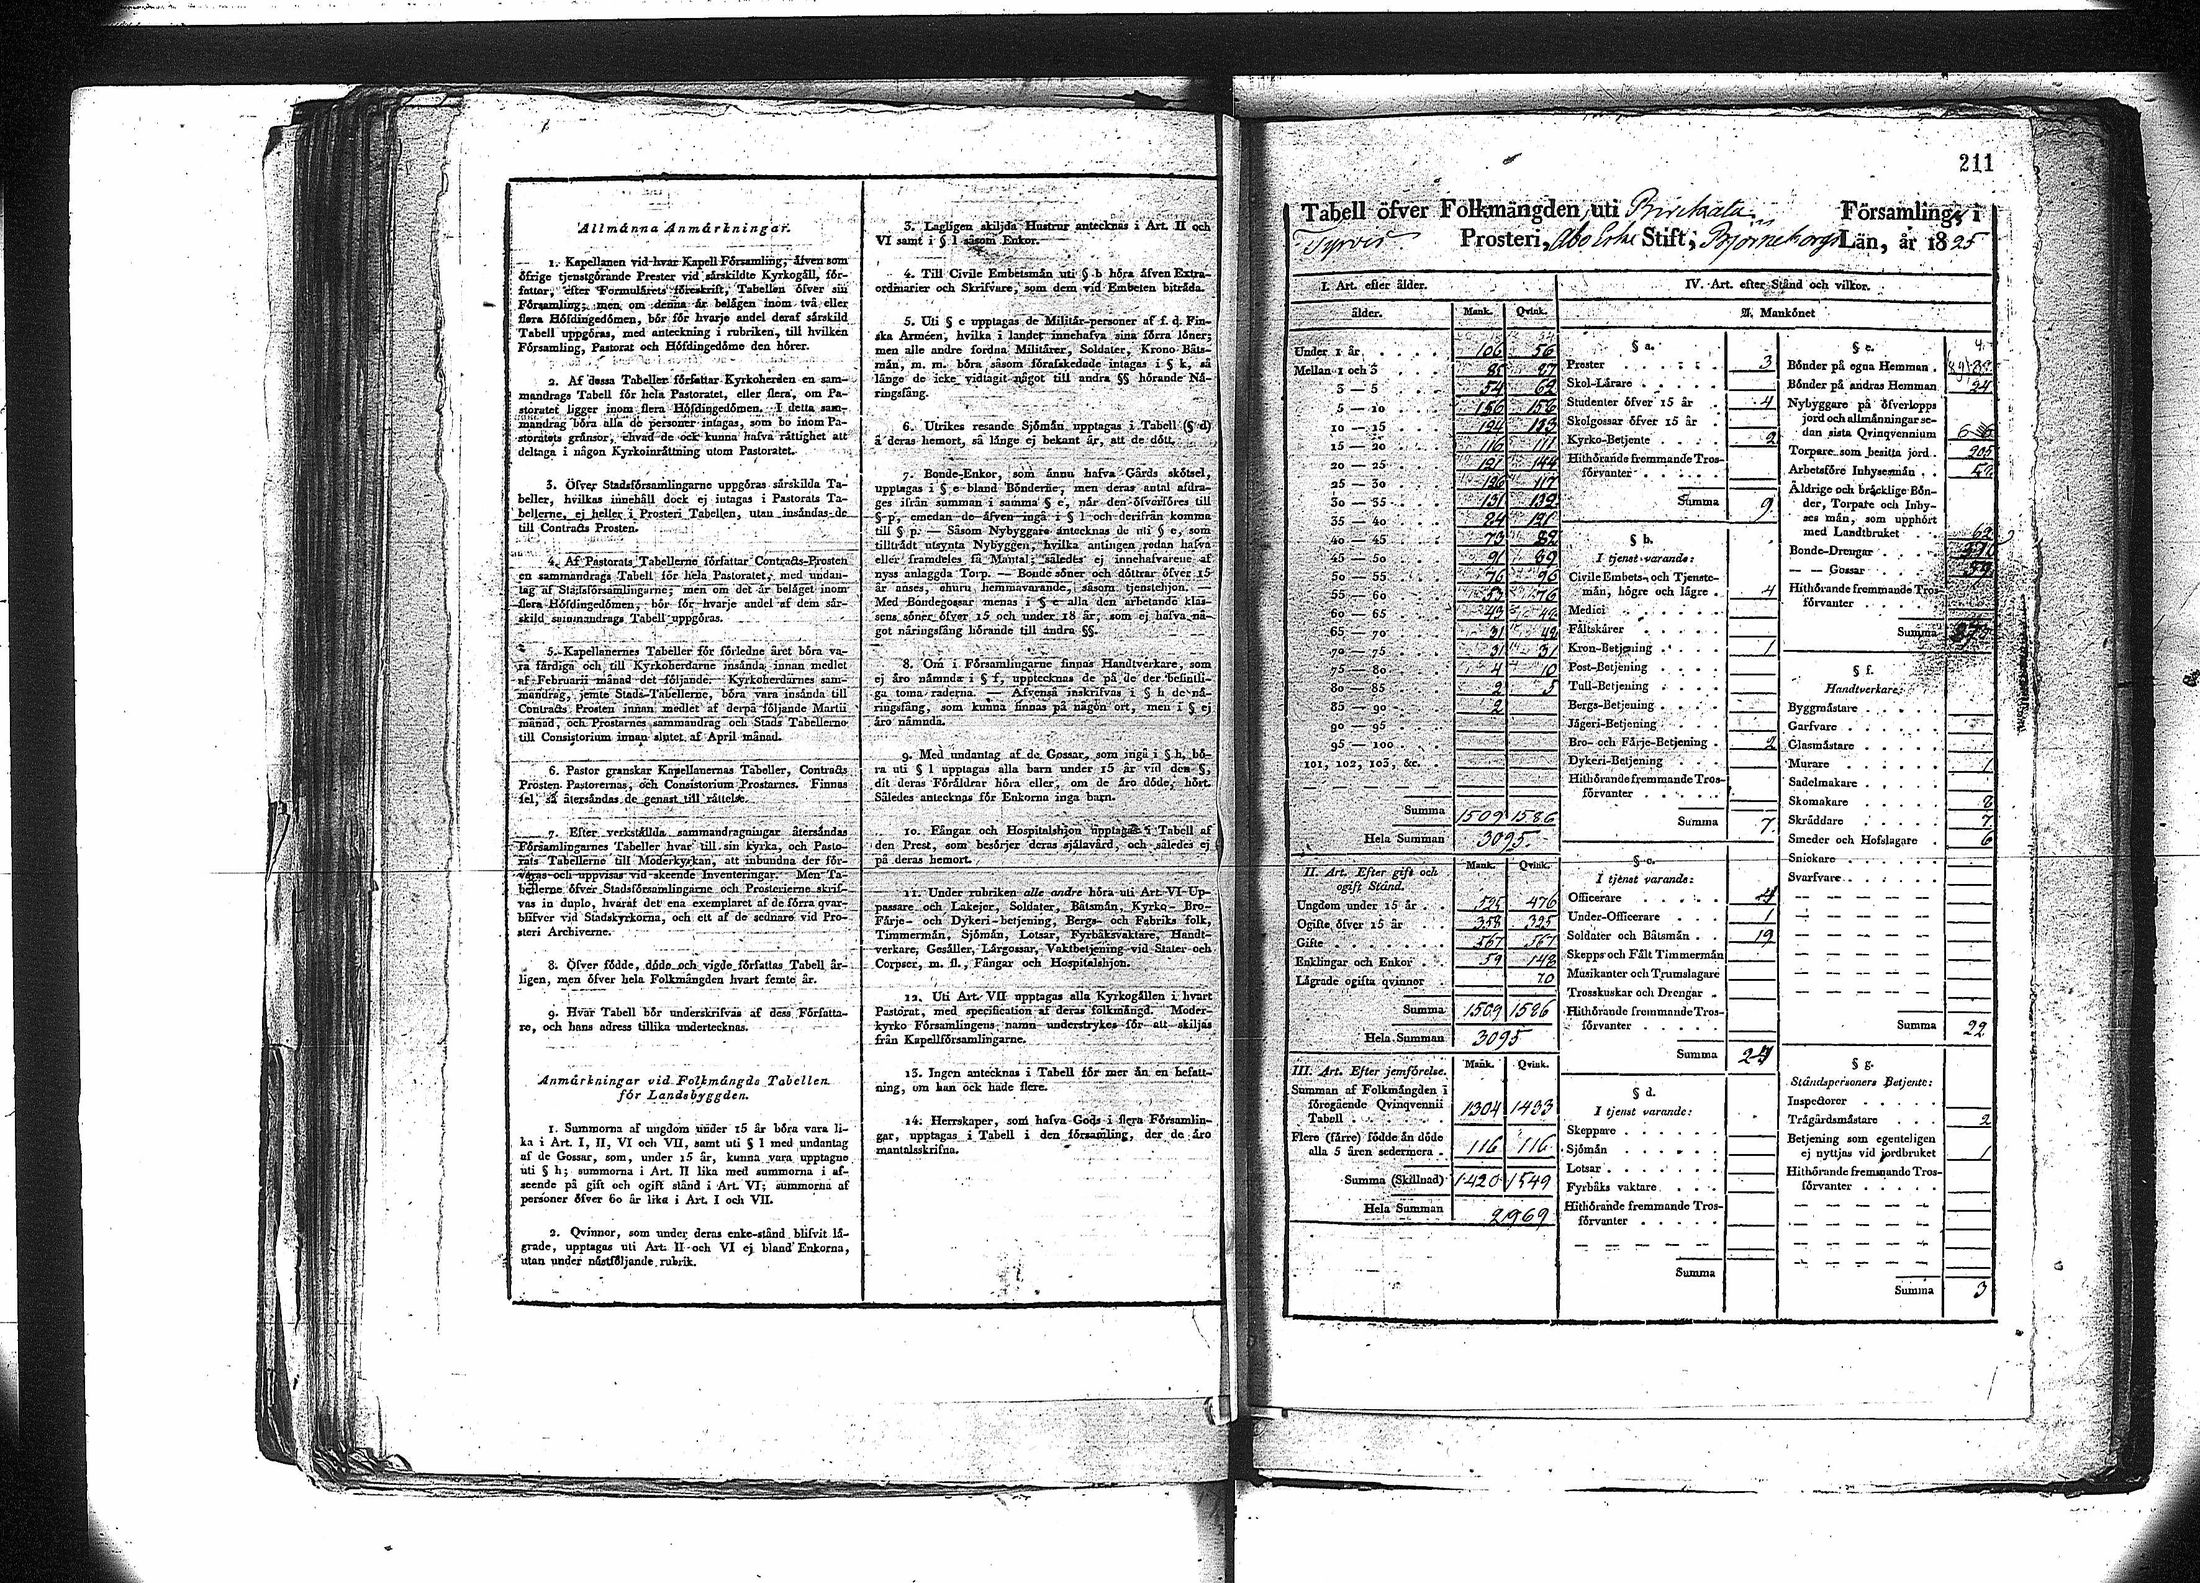 Allmánna Anmárkningar.
1. Kapellanen vid hvar Kapell Fórsamling, áfven som
ófrige tjenstgórande Prester vid sárskildte Kyrkogáll, fór-
fattar, efter Formulárets fóreskrift, Tabellen ófver sin
Fórsamling; men om denna ár belágen inom två eller
flera Hófdingedómen, bór fór hvarje andel deraf sárskild
Tabell uppgóras, med anteckning i rubriken, till hvilken
Fórsamling, Pastorat och Hófdingedóme den hórer.
2. Af dessa Tabeller fórfattar Kyrkoherden en sam-
mandrags Tabell fór hela Pastoratet, eller flera, om Pa-
storatet ligger inom flera Hófdingedómen. I detta sam-
mandrag bóra alla de personer intagas, som bo inom Pa-
storatets gránsor, ehvad de ock kunna hafva ráttighet att
deltaga i någon Kyrkoinráttning utom Pastoratet.
3. Ófver Stadsfórsamlingarne uppgóras sárskilda Ta-
beller, hvilkas innehåll dock ej intagas i Pastorats Ta-
bellerne, ej heller i Prosteri Tabellen, utan insándas de
till Contracts Prosten.
4. Af Pastorats Tabellerne fórfattar Contracts-Prosten
en sammandrags Tabell fór hela Pastoratet, med undan-
tag af Stadsfórsamlingarne; men om det ár beláget inom
flera Hófdingedómen, bór fór hvarje andel af dem sár-
skild sammandrags Tabell uppgóras.
5. Kapellanernes Tabeller fór fórledne året bóra va-
ra fárdiga och till Kyrkoherdarne insånda innan medlet
af Februarii månad det fóljande. Kyrkoherdarnes sam-
mandrag, jemte Stads-Tabellerne, bóra vara insånda till
Contracts Prosten innan medlet af derpå fóljande Martii
månad, och Prostarnes sammandrag och Stads Tabellerne
till Consistorium innan slutet af April månad.
6. Pastor granskar Kapellanernas Tabeller, Contracts
Prosten Pastorernas, och Consistorium Prostarnes. Finnas
fel, så återsándas de genast till ráttelse.
7. Efter verkstállda sammandragningar återsándas
Fórsamlingarnes Tabeller hvar till sin kyrka, och Pasto-
rats Tabellerne till Moderkyrkan, att inbundna der fór-
varas och uppvisas vid skeende Inventeringar. Men Ta-
bellerne ófver Stadsfórsamlingarne och Prosterierne skrif-
vas in duplo, hvaraf det ena exemplaret af de fórra qvar-
blifver vid Stadskyrkorna, och ett af de sednare vid Pro-
steri Archiverne.
8. Ófver fódde, dóde och vigde fórfattas Tabell år-
ligen, men ófver hela Folkmángden hvart femte år.
9. Hvar Tabell bór underskrifvas af dess Fórfatta-
re, och hans adress tillika undertecknas.
Anmárkningar vid Folkmángds Tabellen
fór Landsbyggden.
1. Summorna af ungdom under 15 år bóra vara li-
ka i Art. I, II, VI och VII, samt uti § l med undantag
af de Gossar, som, under 15 år, kunna vara upptagne
uti § h; summorna i Art. II lika med summorna i af-
seende på gift och ogift stånd i Art. VI; summorna af
personer ófver 60 år lika i Art. I och VII.
2. Qvinnor, som under deras enke-stånd blifvit lå-
grade, upptagas uti Art. II och VI ej bland Enkorna,
utan under nåstfóljande rubrik.
3. Lagligen skiljda Hustrur antecknas i Art. II och
VI samt i § l såsom Enkor.
4. Till Civile Embetsmán uti § b hóra áfven Extra-
ordinarier och Skrifvare, som dem vid Embeten bitráda.
5. Uti § c upptagas de Militár-personer af f. d. Fin-
ska Arméen, hvilka i landet innehafva sina fórra lóner;
men alle andre fordna Militárer, Soldater, Krono Båts-
mån, m. m. bóra såsom fórafskedade intagas i § k, så
lánge de icke vidtagit något till andra §§ hórande Ná-
ringsfång.
6. Utrikes resande Sjómån upptagas i Tabell (§ d)
å deras hemort, så lánge ej bekant ár, att de dótt.
7. Bonde-Enkor, som ánnu hafva Gårds skótsel,
upptagas i § e bland Bónderne, men deras antal afdra-
ges ifrån summan i samma § e, når den ófverfóres till
§ p, emedan de áfven ingå i § l och derifrån komma
till § p. — Såsom Nybyggare antecknas de uti § e, som
tilltrådt utsynta Nybyggen, hvilka antingen redan hafva
eller framdeles få Mantal; således ej innehafvarene af
nyss anlaggda Torp. — Bonde sóner och dóttrar ófver 15
år anses, ehuru hemmavarande, såsom tjenstehjon. —
Med Bondegossar menas i § e alla den arbetande klas-
sens sóner ófver 15 och under 18 år, som ej hafva nå-
got nåringsfång hórande till åndra §§.
8. Om i Fórsamlingarne finnas Handtverkare, som
ej áro námnde i § f, upptecknas de på de der befintli-
ga toma raderna. — Áfvenså inskrifvas i § h de ná-
ringsfång, som kunna finnas på någon ort, men i § ej
áro námnda.
9. Med undantag af de Gossar, som ingå i § h, bó-
ra uti § l upptagas alla barn under 15 år vid den §,
dit deras Fóráldrar hóra eller, om de áro dóde, hórt.
Således antecknas fór Enkorna inga barn.
10. Fångar och Hospitalshjon upptagas i Tabell af
den Prest, som besórjer deras sjálavård, och således ej
på deras hemort.
11. Under rubriken alle andre hóra uti Art. VI Up-
passare och Lakejer, Soldater, Båtsmån, Kyrko- Bro-
Fårje- och Dykeri-betjening, Bergs- och Fabriks folk,
Timmermån, Sjómån, Lotsar, Fyrbåksvaktare, Handt-
verkare, Gesåller, Lårgossar, Vaktbetjening vid Stater och
Corpser, m. fl., Fångar och Hospitalshjon.
12. Uti Art. VII upptagas alla Kyrkogållen i hvart
Pastorat, med specification af deras folkmångd. Moder-
kyrko Fórsamlingens namn understrykes fór att skiljas
från Kapellfórsamlingarne.
13. Ingen antecknas i Tabell fór mer ån en befatt-
ning, om han ock hade flere.
14. Herrskaper, som hafva Gods i flera Fórsamlin-
gar, upptagas i Tabell i den fórsamling, der de áro
mantalsskrifna.
211
Tabell öfver Folkmängden uti Birckala Församling i
Tyrvis Prosteri, Åbo Erke Stift, Björneborgs Län, år 1825
I. Art. efter ålder.
ålder. Mank. Qvink.
Under 1 år 106 56
Mellan 1 och 3 85 87
3 — 5 54 62
5 — 10 156 158
10 — 15 124 113
15 — 20 116 111
20 — 25 121 144
25 — 30 126 117
30 — 35 131 132
35 — 40 84 121
40 — 45 73 82
45 — 50 91 89
50 — 55 76 96
55 — 60 53 76
60 — 65 43
65 — 70 31 42
70 — 75 31 31
75 — 80 4 10
80 — 85 2 5
85 — 90 2
90 — 95
95 — 100
101, 102, 103, &c.
Summa 1509 1586
Hela Summan 3095.
II. Art. Efter gift och
ogift Stånd.
Mank. Qvink.
Ungdom under 15 år 525 476
Ogifte öfver 15 år 358 325
Gifte 567 567
Enklingar och Enkor 59 148
Lågrade ogifta qvinnor 70
Summa 1509 1586
Hela Summan 3095
III. Art. Efter jemförelse.
Mank. Qvink.
Summan af Folkmången i
föregående Qvinqvennii
Tabell 1304 1433
Flere (färre) födde än döde
alla 5 åren sedermera 116 116
Summa (Skillnad) 1420 1549
Hela Summan 2969
IV. Art. efter Stånd och vilkor.
A. Mankönet
§ a.
Prester 3
Skol-Lärare
Studenter öfver 15 år 4
Skolgossar öfver 15 år
Kyrko-Betjente 2
Hithörande fremmande Tros-
förvanter
Summa 9
§ b.
I tjenst varande:
Civile Embets- och Tjenste-
män, högre och lägre 4
Medici
Fältskärer
Kron-Betjening 1
Post-Betjening
Tull-Betjening
Bergs-Betjening
Jägeri-Betjening
Bro- och Färje-Betjening 2
Dykeri-Betjening
Hithörande fremmande Tros-
förvanter
Summa 7.
§ c.
I tjenst varande:
Officerare 4
Under-Officerare 1
Soldater och Båtsmän 19
Skepps och Fält Timmermän
Musikanter och Trumslagare
Trosskuskar och Drengar
Hithörande fremmande Tros-
förvanter
Summa 24
§ d.
I tjenst varande:
Skeppare
Sjömän
Lotsar
Fyrbåks vaktare
Hithörande fremmande Tros-
förvanter
Summa
§ e.
Bönder på egna Hemman
Bönder på andras Hemman 24
Nybyggare på öfverlopps
jord och allmänningar se-
dan sista Qvinqvennium
Torpare som besitta jord 205
Arbetsföre Inhysesmän
Äldrige och bräcklige Bön-
der, Torpare och Inhy-
ses män, som upphört
med Landtbruket 62
Bonde-Drengar
— — Gossar
Hithörande fremmande Tros-
förvanter
Summa
§ f.
Handtverkare:
Byggmästare
Garfvare
Glasmästare
Murare 1
Sadelmakare
Skomakare 8
Skräddare 7
Smeder och Hofslagare 6
Snickare
Svarfvare
Summa 22
§ g.
Ståndspersoners Betjente:
Inspectorer
Trägårdsmästare 2
Betjening som egenteligen
ej nyttjas vid jordbruket 1
Hithörande fremmande Tros-
förvanter
Summa 3